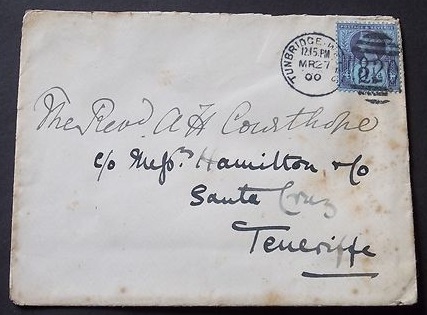 TUNBRIDGE-W
12.15.PM
MR27
00
POSTAGE & REVENUE
The Revd. A H Courthope
c/o Messrs. Hamilton & Co
Santa Cruz
Teneriffe